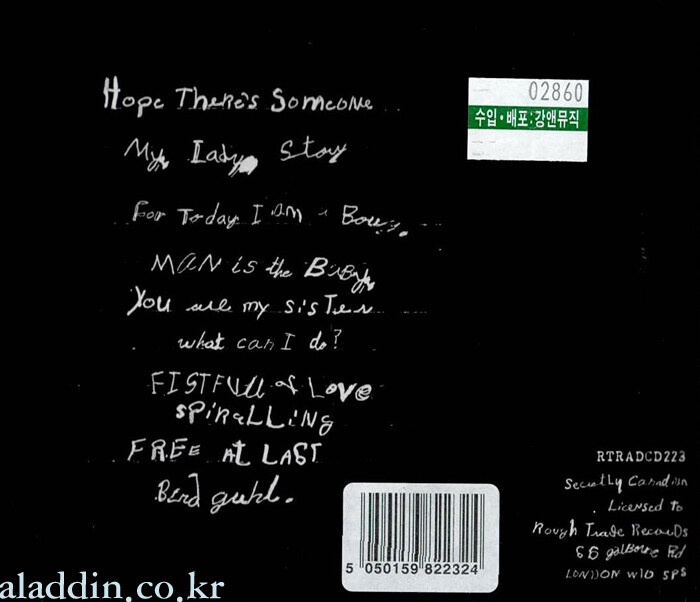 02860
수입·배포:강앤뮤직
Hope There's Someone
My Lady Stoy
For Today I am a Bouy.
MAN is the Baby
You are my sister
what can I do?
FISTFUll of LOVE
SPiRaLLiNG
FREE AT LAST
Bird guhl.
RTRADCD223
Secretly Canadian
Licensed To
Rough Trade Records
66 golborne Rd
LONDON W10 5PS
5 050159 822324
aladdin.co.kr